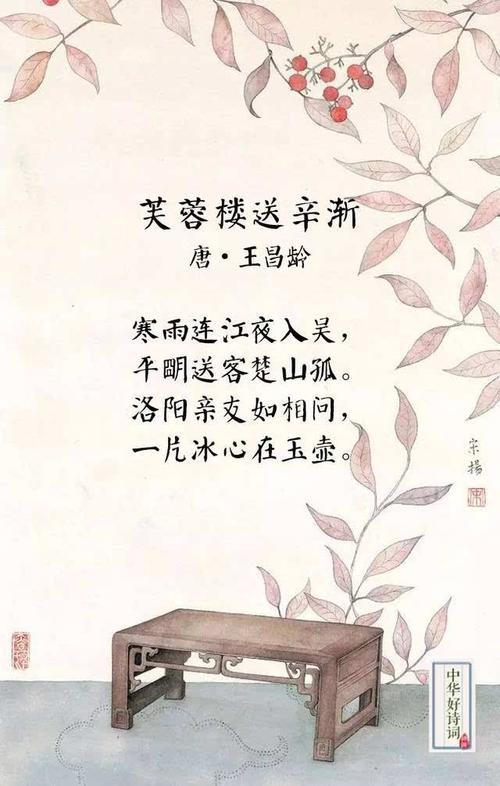 芙蓉楼送辛渐
唐·王昌龄
寒雨连江夜入吴，
平明送客楚山孤。
洛阳亲友如相问，
一片冰心在玉壶。
宗扬
中华好诗词